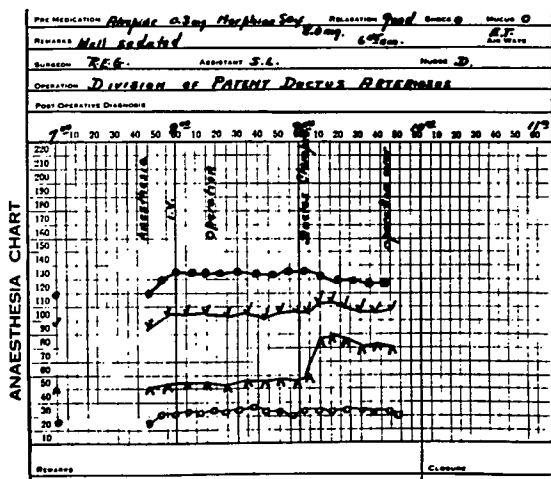 PRE MEDICATION Atropine 0.3mg Morphine Sulf RELAXATION Good SHOCK 0 MUCUS 0
REMARKS Well sedated 8.0mg. E.T. AIR WAYS
SURGEON R.E.G. ASSISTANT S.L. NURSE D.
OPERATION DIVISION OF PATENT DUCTUS ARTERIOSUS
POST OPERATIVE DIAGNOSIS
10 20 30 40 50 10 20 30 40 50 10 20 30 40 50 10 20 30 40 50
ANAESTHESIA CHART
220
210
200
190
180
170
160
150
140
130
120
110
100
90
80
70
60
50
40
30
20
10
Anaesthesia
I.V.
Operation
Ductus Clamped
Operation over
REMARKS CLOSURE